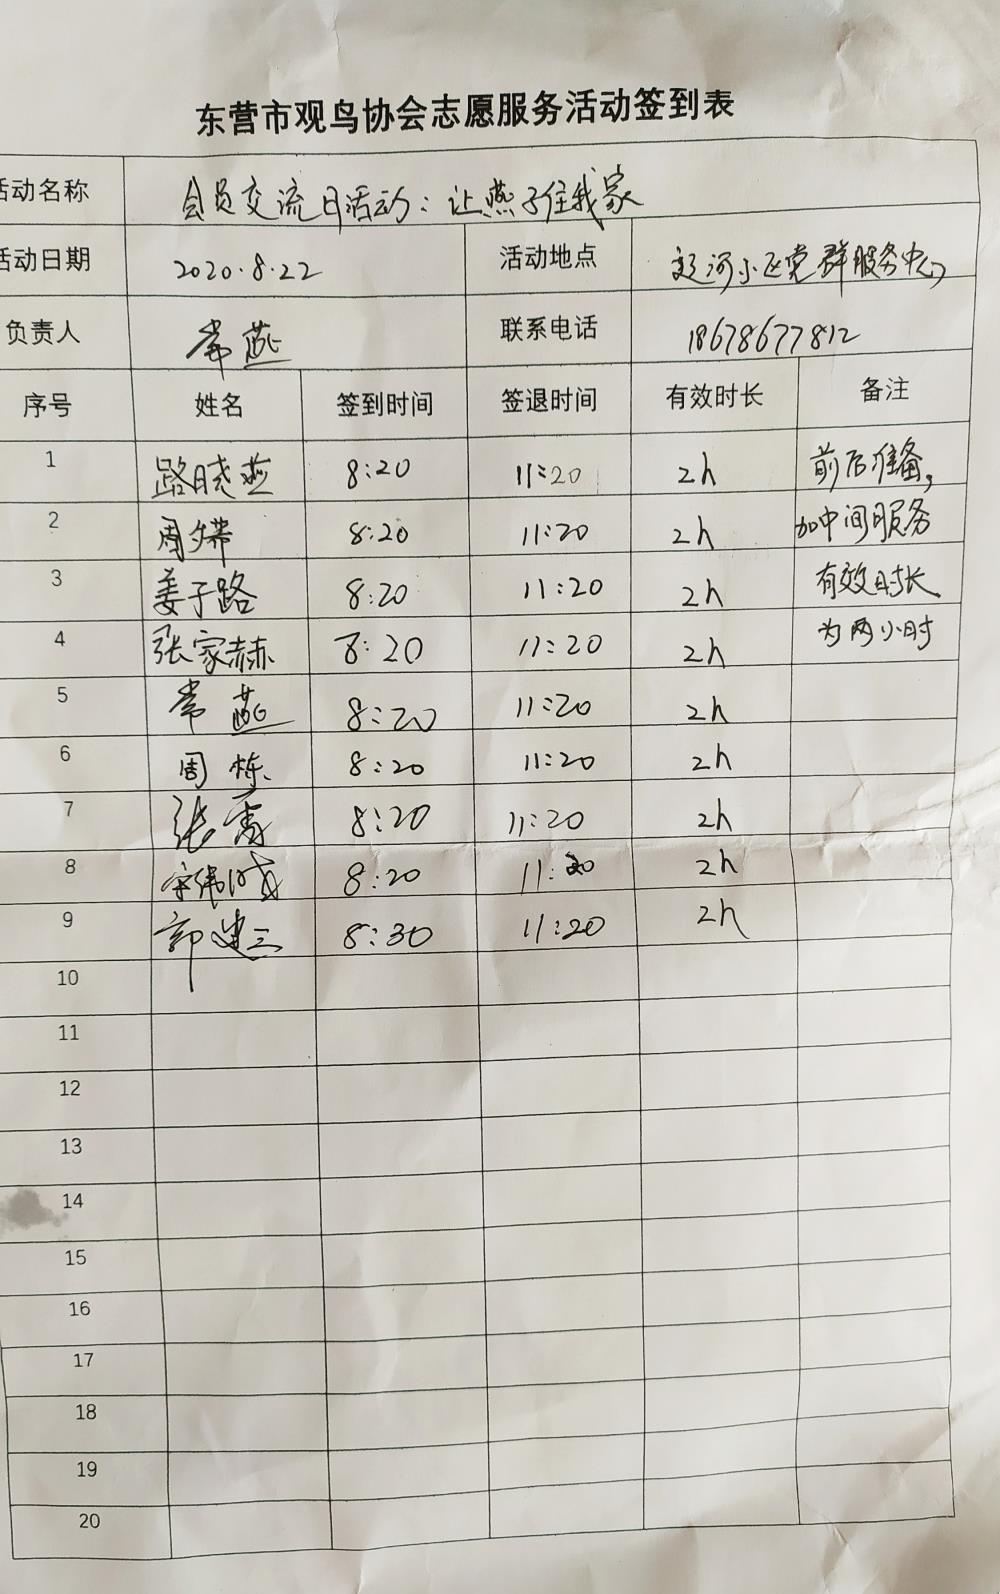 东营市观鸟协会志愿服务活动签到表
活动名称 会员交流日活动：让燕子住我家
活动日期 2020.8.22 活动地点 河小区党群服务中心
负责人 常燕 联系电话 18678677812
序号 姓名 签到时间 签退时间 有效时长 备注
1 路晓燕 8:20 11:20 2h 前后准备,
2 周 8:20 11:20 2h 加中间服务
3 姜子路 8:20 11:20 2h 有效时长
4 张家赫 8:20 11:20 2h 为两小时
5 常燕 8:20 11:20 2h
6 周栋 8:20 11:20 2h
7 张 8:20 11:20 2h
8 8:20 11:20 2h
9 郭建三 8:30 11:20 2h
10
11
12
13
14
15
16
17
18
19
20